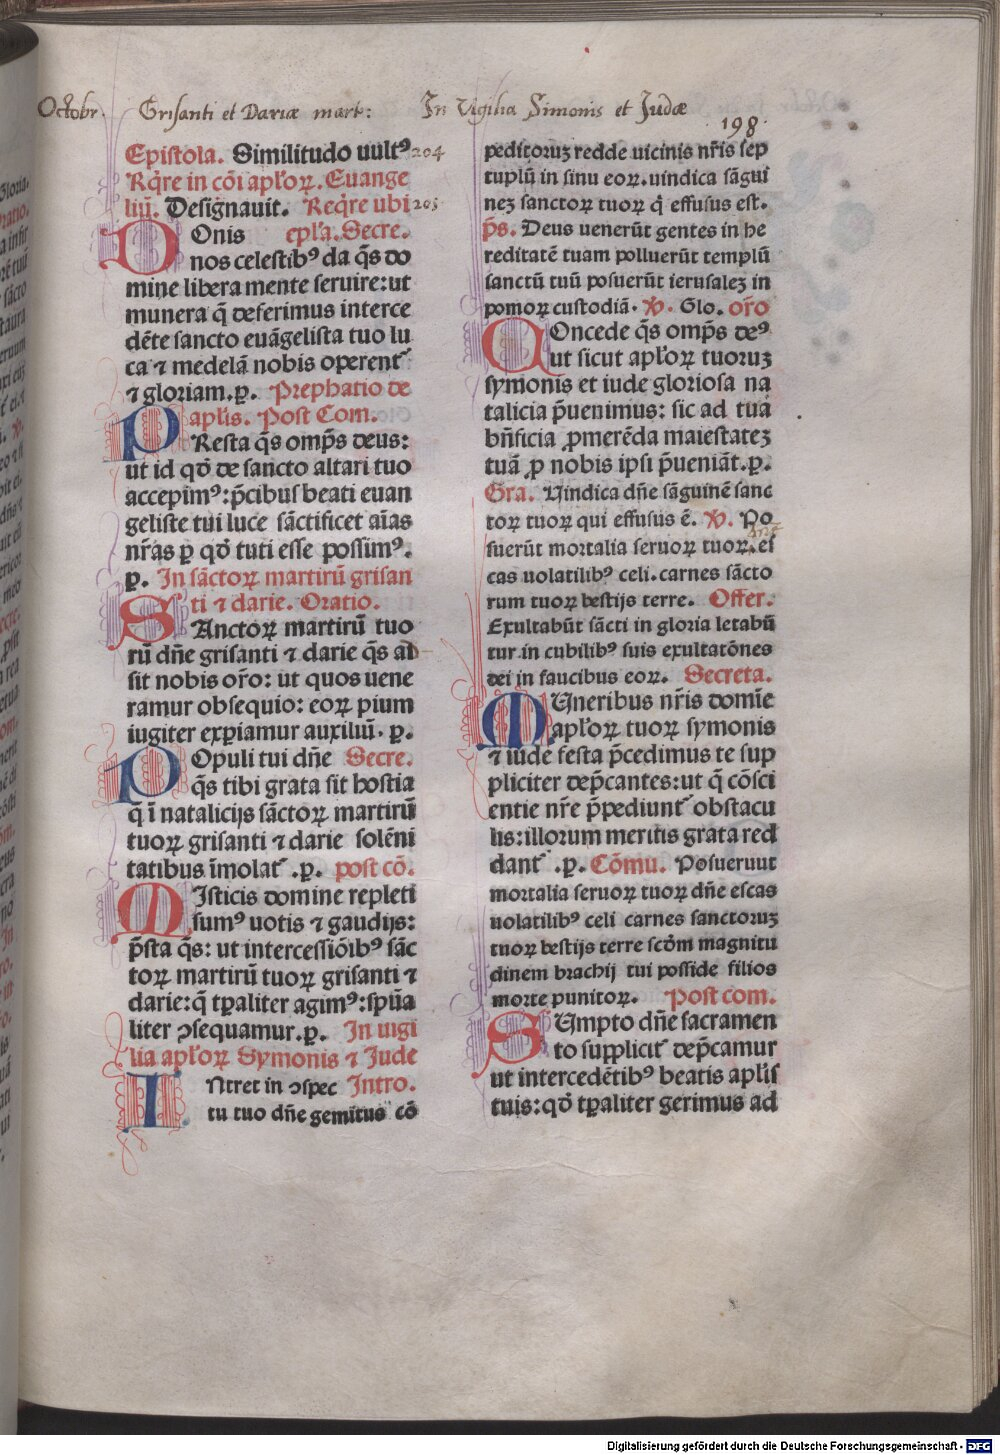 Octobr. Grisanti et Dariæ mart: In Vigilia Simonis et Judæ
198.
Epistola. Similitudo uult⁹ 204
Rq̄re in cōi apl̄oꝝ. Euange
liū. Designauit. Reqr̄e ubi 203
DOnis epl̄a. Secre.
nos celestibꝰ da q̄s do
mine libera mente seruire: ut
munera q̄ deferimus interce
dēte sancto euāgelista tuo lu
ca ⁊ medelā nobis operent᷑
⁊ gloriam. p. Prephatio de
apl̄is. Post Com.
PResta q̄s omp̄s deus:
ut id qd̄ de sancto altari tuo
accepimꝰ: p̄cibus beati euan
geliste tui luce sāctificet aīas
nr̄as ꝑ qd̄ tuti esse possimꝰ.
p. In sāctoꝝ martirū grisan
ti ⁊ darie. Oratio.
SAnctoꝝ martirū tuo
rū dn̄e grisanti ⁊ darie q̄s ad
sit nobis or̄o: ut quos uene
ramur obsequio: eoꝝ pium
iugiter exꝑiamur auxiliū. p.
POpuli tui dn̄e Secre.
q̄s tibi grata sit hostia
q̄ ī natalicijs sāctoꝝ martirū
tuoꝝ grisanti ⁊ darie solēni
tatibus īmolat᷑. p. post cō.
MIsticis domine repleti
sumꝰ uotis ⁊ gaudijs:
p̄sta q̄s: ut intercessiōibꝰ sāc
toꝝ martirū tuoꝝ grisanti ⁊
darie: q̄ tꝑaliter agimꝰ: sp̄ua
liter ꝯsequamur. p. In uigi
lia apl̄oꝝ Symonis ⁊ Jude
INtret in ꝯspec Intro.
tu tuo dn̄e gemitus cō
peditoruꝫ redde uicinis nr̄is sep
tuplū in sinu eoꝝ. uindica sāgui
neꝫ sanctoꝝ tuoꝝ q̄ effusus est.
p̄s. Deus uenerūt gentes in he
reditatē tuam polluerūt templū
sanctū tuū posuerūt ierusaleꝫ in
pomoꝝ custodiā. ℣. Glo. or̄o
COncede q̄s omp̄s deꝰ
ut sicut apl̄oꝝ tuoruꝫ
symonis et iude gloriosa na
talicia p̄uenimus: sic ad tuā
bn̄ficia ꝓmerēda maiestateꝫ
tuā ꝓ nobis ipsi p̄ueniāt. p.
Gra. Uindica dn̄e sāguinē sanc
toꝝ tuoꝝ qui effusus ē. ℣. Po
suerūt mortalia seruoꝝ tuoꝝ. es
cas uolatilibꝰ celi. carnes sācto
rum tuoꝝ bestijs terre. Offer.
Exultabūt sācti in gloria letabū
tur in cubilibꝰ suis exultatōnes
dei in faucibus eoꝝ. Secreta.
MUneribus nr̄is domīe
apl̄oꝝ tuoꝝ symonis
⁊ iude festa p̄cedimus te sup
pliciter dep̄cantes: ut q̄ cōsci
entie nr̄e p̄pediunt᷑ obstacu
lis: illorum meritis grata red
dant᷑. p. Cōmu. Posuerunt
mortalia seruoꝝ tuoꝝ dn̄e escas
uolatilibꝰ celi carnes sanctoruꝫ
tuoꝝ bestijs terre scd̄m magnitu
dinem brachij tui posside filios
morte punitoꝝ. Post com.
SUmpto dn̄e sacramen
to supplicit᷑ dep̄camur
ut intercedētibꝰ beatis apl̄is
tuis: qd̄ tꝑaliter gerimus ad
Digitalisierung gefördert durch die Deutsche Forschungsgemeinschaft - DFG